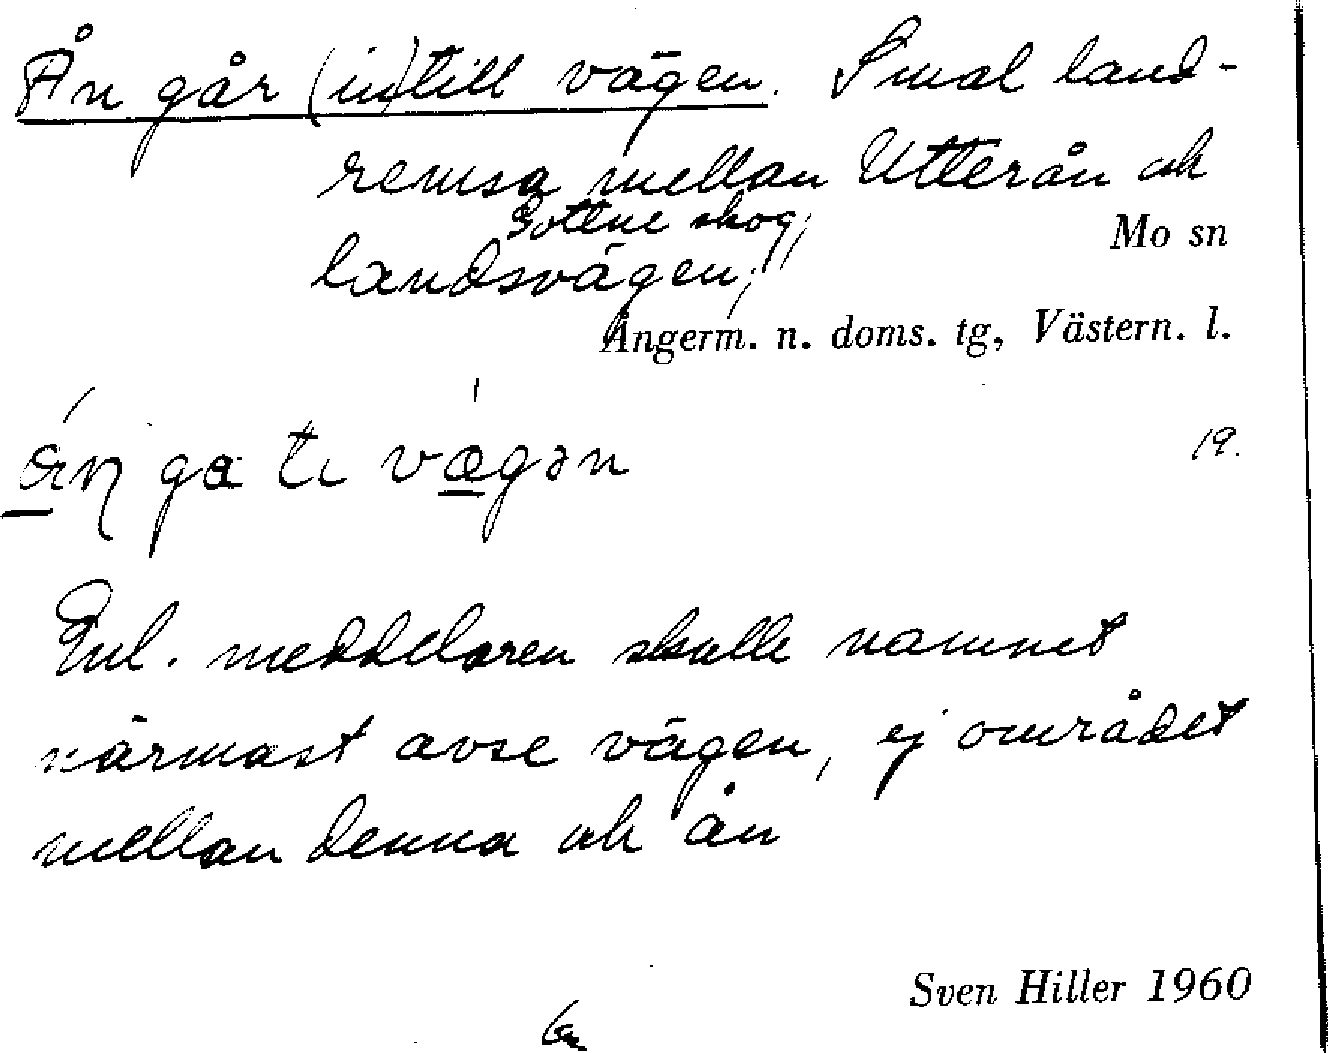 Ån går (in)till vägen. Smal land-
remsa mellan Utterån och
Gottne skog
Mo sn
landsvägen,
Ångerm. n. doms. tg, Västern. l.
ga ti vægən
19.
Enl. meddelaren skulle namnet
närmast avse vägen, ej området
mellan denna och ån
Sven Hiller 1960